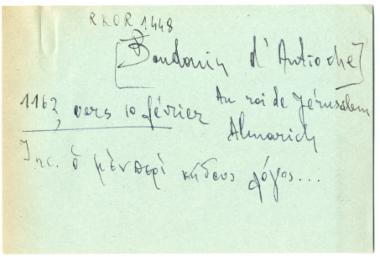 RKOR 1448
[Baudouin d'Antioche]
1163, vers 10 février Au roi de Jérusalem
Almarich
Inc. ὁ μὲν περὶ κήδους λόγος...